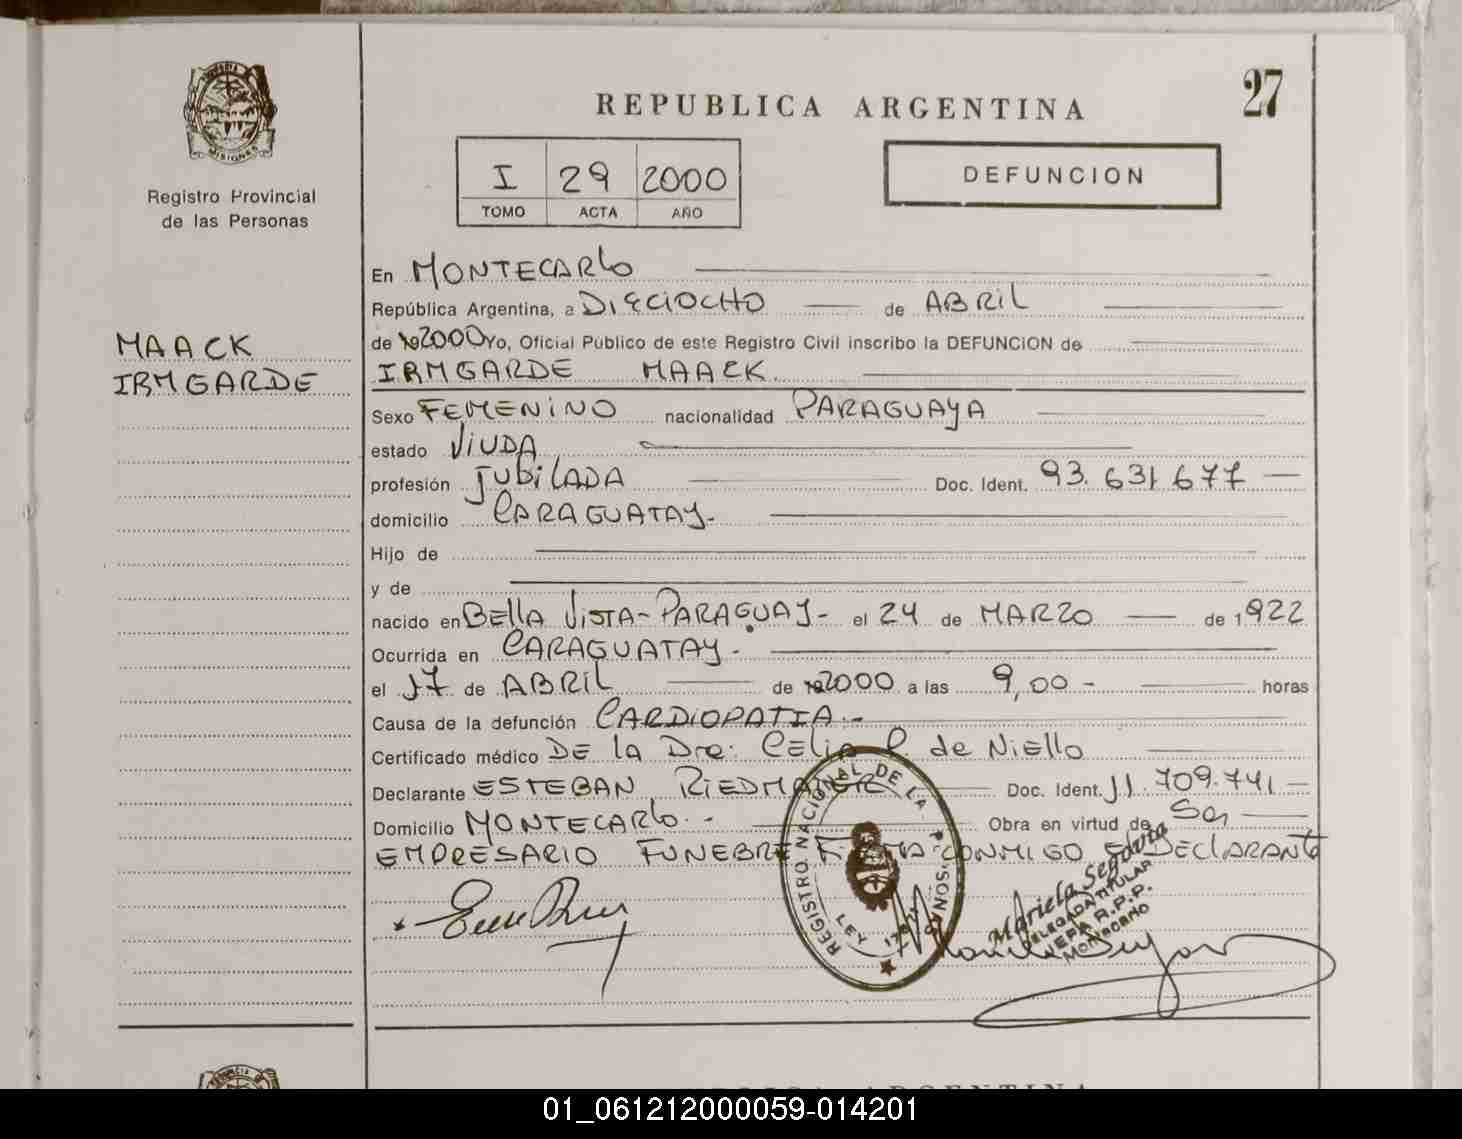 27
REPUBLICA ARGENTINA
MISIONES
Registro Provincial
de las Personas
I 29 2000
TOMO ACTA AÑO
DEFUNCION
MAACK
IRMGARDE
En MONTECARLO
República Argentina, a DIECIOCHO de ABRIL
de 2000 Yo, Oficial Público de este Registro Civil inscribo la DEFUNCION de
IRMGARDE MAACK.
Sexo FEMENINO nacionalidad PARAGUAYA
estado VIUDA
profesión JUBILADA Doc. Ident. 93.631677
domicilio CARAGUATAY-
Hijo de
y de
nacido en BELLA VISTA-PARAGUAY- el 24 de MARZO de 1922
Ocurrida en CARAGUATAY-
el 17 de ABRIL de 2000 a las 9,00 - horas
Causa de la defunción CARDIOPATIA.-
Certificado médico DE la Dra: Celia P. de Niello
Declarante ESTEBAN Doc. Ident. 11.709.741
Domicilio MONTECARLO.- Obra en virtud de Ser
EMPRESARIO FUNEBRE FIRMA CONMIGO EL DECLARANTE
REGISTRO NACIONAL DE LA PERSONAS
LEY
Mariela Segovia
DELEGADA TITULAR
JEFA R.P.P.
Montecarlo
REPUBLICA ARGENTINA
01_061212000059-014201